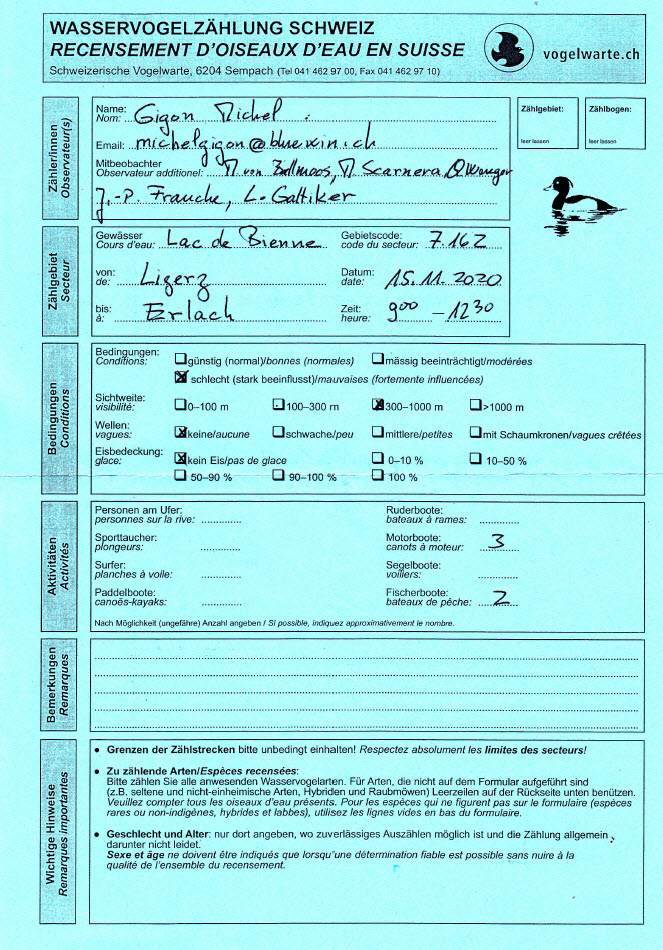 WASSERVOGELZÄHLUNG SCHWEIZ
RECENSEMENT D'OISEAUX D'EAU EN SUISSE
Schweizerische Vogelwarte, 6204 Sempach (Tel 041 462 97 00, Fax 041 462 97 10)
vogelwarte.ch
Zähler/innen
Observateur(s)
Name:
Nom: Gigon Michel
Email: michelgigon@bluewin.ch
Mitbeobachter
Observateur additionel: M von Ballmoos, M Scarnera, O Wenger
J.-P. Franche, L. Gattiker
Zählgebiet:
leer lassen
Zählbogen:
leer lassen
Zählgebiet
Secteur
Gewässer
Cours d'eau: Lac de Bienne
Gebietscode:
code du secteur: 7.162
von:
de: Ligerz
Datum:
date: 15.11.2020
bis:
à: Erlach
Zeit:
heure: 9 00 - 12 30
Bedingungen
Conditions
Bedingungen:
Conditions:
günstig (normal)/bonnes (normales)
mässig beeinträchtigt/modérées
schlecht (stark beeinflusst)/mauvaises (fortemente influencées)
Sichtweite:
visibilité:
0–100 m
100–300 m
300–1000 m
>1000 m
Wellen:
vagues:
keine/aucune
schwache/peu
mittlere/petites
mit Schaumkronen/vagues crêtées
Eisbedeckung:
glace:
kein Eis/pas de glace
0–10 %
10–50 %
50–90 %
90–100 %
100 %
Aktivitäten
Activités
Personen am Ufer:
personnes sur la rive:
Ruderboote:
bateaux à rames:
Sporttaucher:
plongeurs:
Motorboote:
canots à moteur: 3
Surfer:
planches à voile:
Segelboote:
voiliers:
Paddelboote:
canoës-kayaks:
Fischerboote:
bateaux de pêche: 2
Nach Möglichkeit (ungefähre) Anzahl angeben / Si possible, indiquez approximativement le nombre.
Bemerkungen
Remarques
Wichtige Hinweise
Remarques importantes
• Grenzen der Zählstrecken bitte unbedingt einhalten! Respectez absolument les limites des secteurs!
• Zu zählende Arten/Espèces recensées:
Bitte zählen Sie alle anwesenden Wasservogelarten. Für Arten, die nicht auf dem Formular aufgeführt sind
(z.B. seltene und nicht-einheimische Arten, Hybriden und Raubmöwen) Leerzeilen auf der Rückseite unten benützen.
Veuillez compter tous les oiseaux d'eau présents. Pour les espèces qui ne figurent pas sur le formulaire (espèces
rares ou non-indigènes, hybrides et labbes), utilisez les lignes vides en bas du formulaire.
• Geschlecht und Alter: nur dort angeben, wo zuverlässiges Auszählen möglich ist und die Zählung allgemein
darunter nicht leidet.
Sexe et âge ne doivent être indiqués que lorsqu"une détermination fiable est possible sans nuire à la
qualité de l'ensemble du recensement.